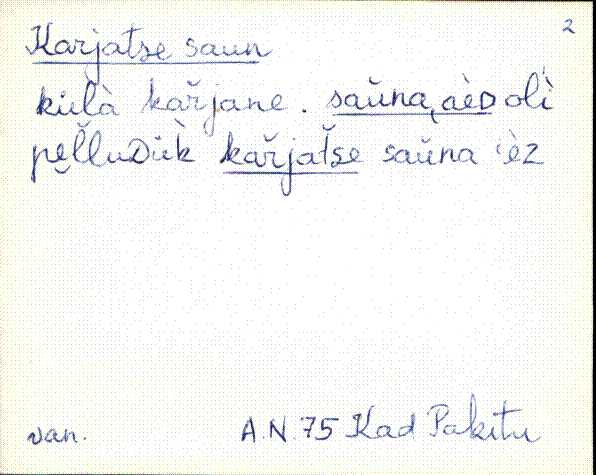 2
Karjatse saun
külà kaŕjane. saŭna, aèD olì
pe̬l̆luDùk kaŕjat̆se saŭna èz
van. A.N. 75 Kad Pakitu